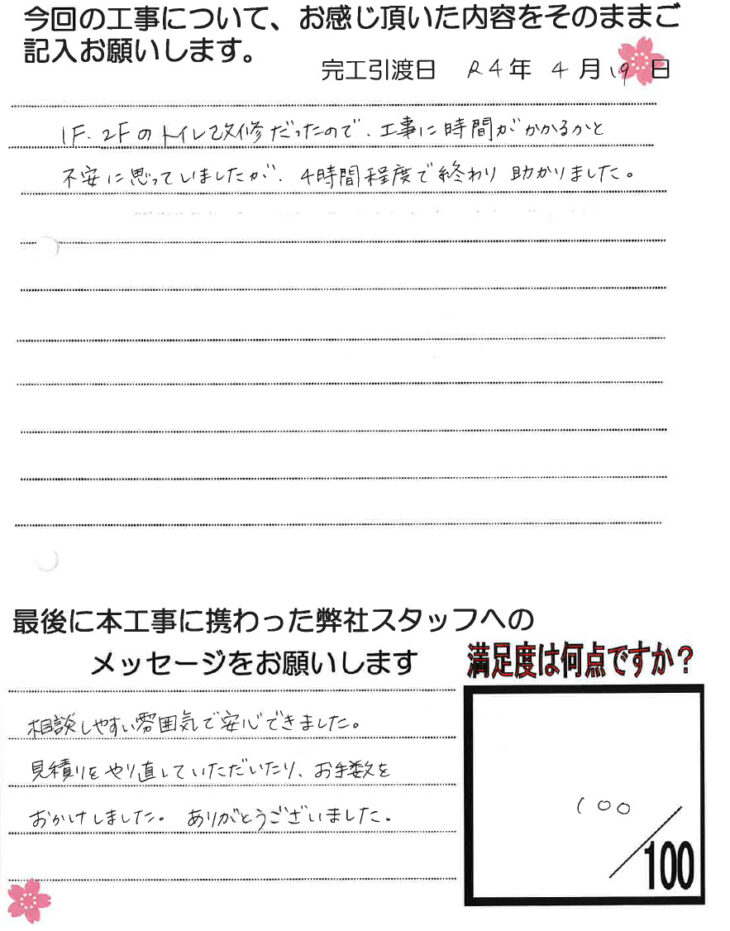 今回の工事について、お感じ頂いた内容をそのままご
記入お願いします。
完工引渡日 R4年 4月19日
1F.2Fのトイレ改修だったので、工事に時間がかかるかと
不安に思っていましたが、4時間程度で終わり助かりました。
最後に本工事に携わった弊社スタッフへの
メッセージをお願いします
満足度は何点ですか？
相談しやすい雰囲気で安心できました。
見積りをやり直していただいたり、お手数を
おかけしました。ありがとうございました。
100
/100